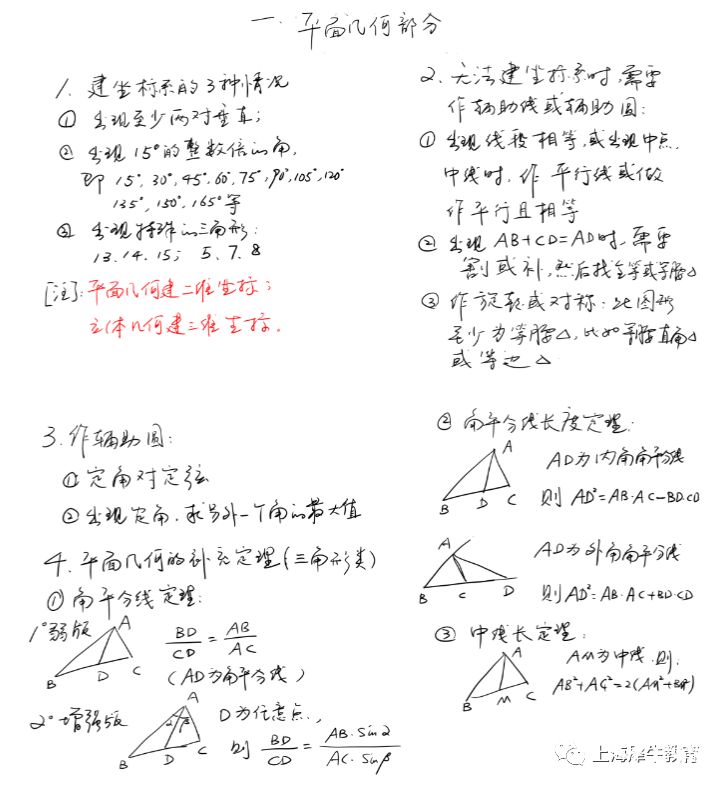 一. 平面几何部分
1. 建坐标系的3种情况
① 出现至少两对垂直;
② 出现15°的整数倍的角,
即 15°, 30°, 45°, 60°, 75°, 90°, 105°, 120°
135°, 150°, 165°等
③ 出现特殊的三角形:
13. 14. 15; 5. 7. 8
[注]: 平面几何建二维坐标;
立体几何建三维坐标.
2. 无法建坐标系时, 需要
作辅助线或辅助圆:
① 出现线段相等, 或出现中点,
中线时, 作平行线或做
作平行且相等
② 出现 AB+CD=AD时, 需要
割或补, 然后找全等或等腰△
③ 作旋转或对称: 此图形
至少为等腰△, 比如等腰直角△
或等边△
3. 作辅助圆:
① 定角对定弦
② 出现定角, 求另外一个角的最大值
4. 平面几何的补充定理(三角形类)
① 角平分线定理:
1° 弱版
A
B
D
C
BD/CD = AB/AC
(AD为角平分线)
2° 增强版
A
α
β
B
D
C
D为任意点,
则 BD/CD = AB·Sinα/AC·Sinβ
② 角平分线长度定理:
A
B
D
C
AD为内角角平分线
则 AD²=AB·AC-BD·CD
A
B
C
D
AD为外角角平分线
则 AD²=AB·AC+BD·CD
③ 中线长定理:
A
B
M
C
AM为中线, 则.
AB²+AC²=2(AM²+BM²)
上海犀牛教育